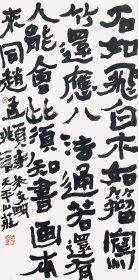 石如飛白木如籀寫
竹還應八法通若還有
人能會此須知書畫本
來同趙孟頫